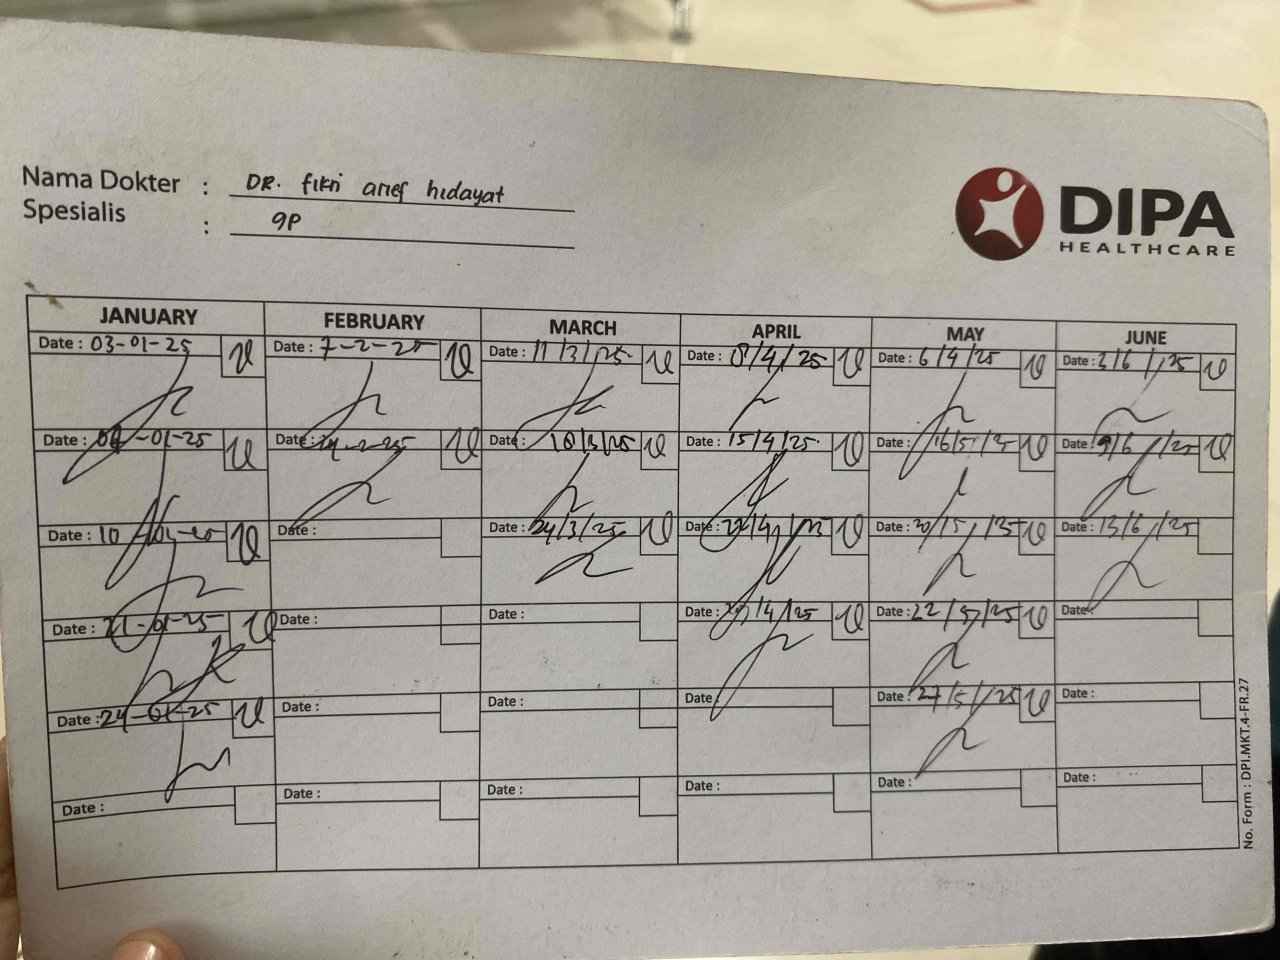 Nama Dokter : DR. fikri arief hidayat
Spesialis : gp
DIPA
HEALTHCARE
JANUARY FEBRUARY MARCH APRIL MAY JUNE
Date : 03-01-25 Date : 7-2-25 Date : 11/3/25 Date : 8/4/25 Date : 6/4/25 Date : /6/25
Date : -01-25 Date : -2-25 Date : 18/3/25 Date : 15/4/25 Date : 16/5/25 Date : 9/6/25
Date : 10 Date : Date : 24/3/25 Date : Date : 20/5/25 Date : 13/6/25
Date : 21-01-25 Date : Date : Date : /4/25 Date : 22/5/25 Date :
Date : 24-01-25 Date : Date : Date : Date : 27/5/25 Date :
Date : Date : Date : Date : Date : Date :
No. Form : DPI.MKT.4-FR.27